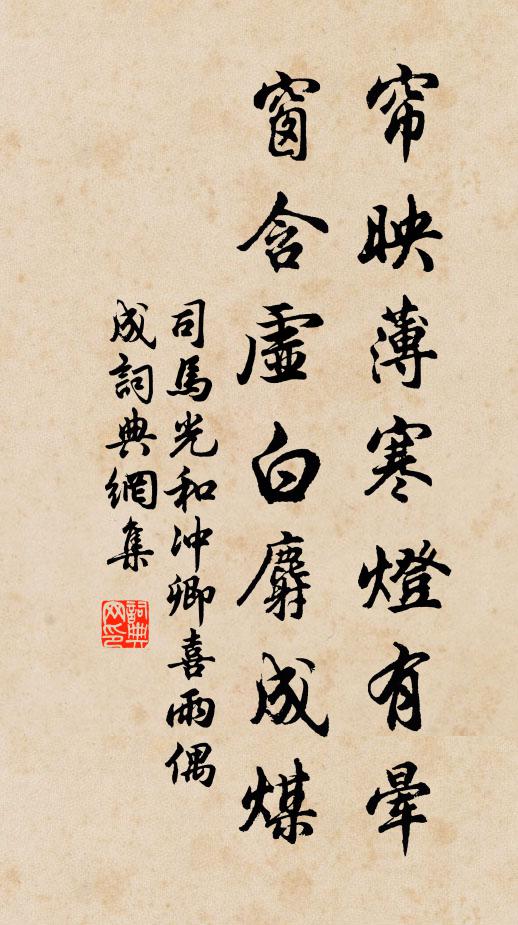 帘映薄寒燈有暈
窗含虛白麝成煤
司馬光和沖卿喜雨偶
成詞典網集
詞典网印